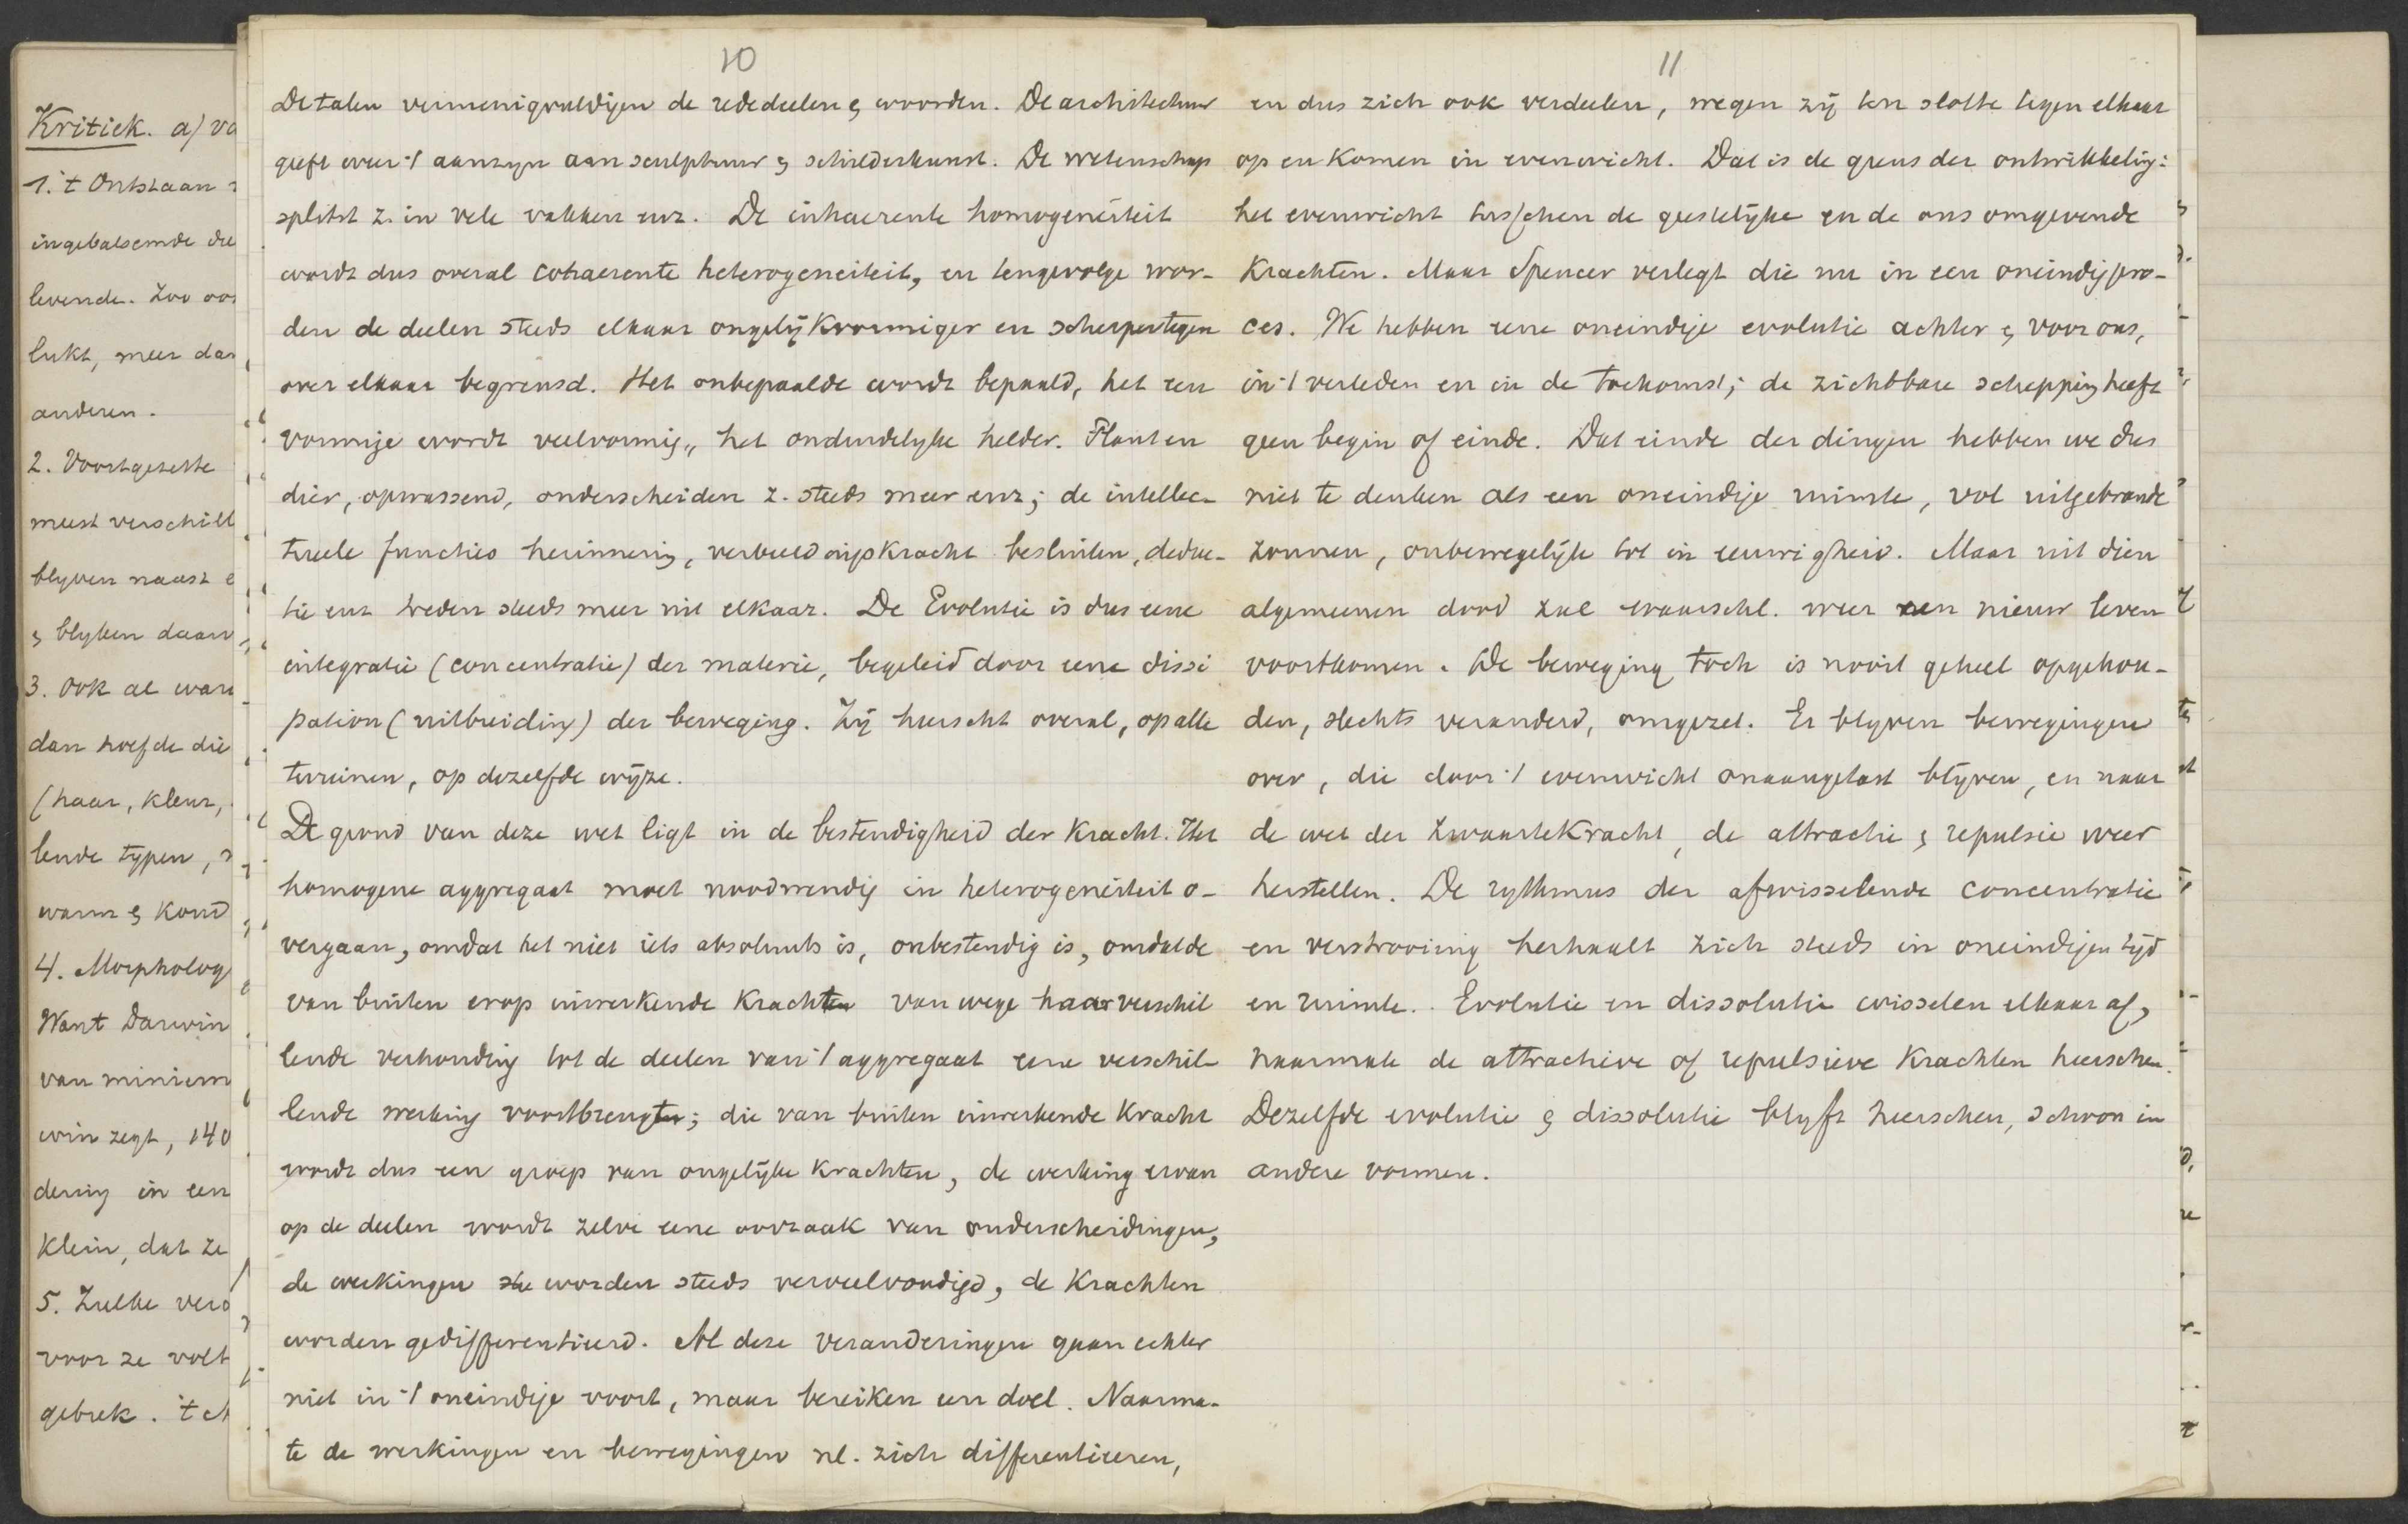 Kritiek. a) va
1. 't Ontstaan
ingebalsemde die
levende. Zoo oo
lukt, meer dan
anderen.
2. Voortgezette
meest verschill
blyven naast e
& blyken daar
3. Ook al ware
dan hoefde die
(haar, kleur,
lende typen,
warm & koud
4. Morpholog
Want Darwin
van miniem
win zegt, 140
dering in een
klein, dat ze
5. Zulke vero
voor ze volt
gebrek. 't
10
De talen vermenigvuldigen de rededeelen & woorden. De architectuur
geeft weer 't aanzyn aan sculptuur & schilderkunst. De wetenschap
splitst z. in vele vakken enz. De inhaerente homogeneïteit
wordt dus overal cohaerente heterogeneiteit, en tengevolge wor-
den de deelen steeds elkaar ongelijkvormiger en scherper tegen
over elkaar begrensd. Het onbepaalde wordt bepaald, het een
vormige wordt veelvormig, het onduidelyke helder. Plant en
dier, opwassend, onderscheiden z. steeds meer enz; de intellec-
tueele functies herinnering, verbeeldingskracht besluiten, deduc-
tie enz treden steeds meer uit elkaar. De Evolutie is dus eene
integratie (concentratie) der materie, begeleid door eene dissi
pation (uitbreiding) der beweging. Zij heerscht overal, op alle
terreinen, op dezelfde wijze.
De grond van deze wet ligt in de bestendigheid der kracht. Het
homogene aggregaat moet noodwendig in heterogeneïteit o-
vergaan, omdat het niet iets absoluuts is, onbestendig is, omdat de
van buiten erop inwerkende krachten van wege haar verschil
lende verhouding tot de deelen van 't aggregaat eene verschil-
lende werking voortbrengt; die van buiten inwerkende kracht
wordt dus een groep van ongelijke krachten, de werking ervan
op de deelen wordt zelve eene oorzaak van onderscheidingen,
de werkingen worden steeds verveelvoudigd, de krachten
worden gedifferentieerd. Al deze veranderingen gaan echter
niet in 't oneindige voort, maar bereiken een doel. Naarma-
te de werkingen en bewegingen nl. zich differentieeren,
11
en dus zich ook verdeelen, wegen zij ten slotte tegen elkaar
op en komen in evenwicht. Dat is de grens der ontwikkeling:
het evenwicht tusschen de geestelijke en de ons omgevende
krachten. Maar Spencer verlegt die nu in een oneindig pro-
ces. We hebben eene oneindige evolutie achter & voor ons,
in 't verleden en in de toekomst; de zichtbare schepping heeft
geen begin of einde. Dat einde der dingen hebben we dus
niet te denken als een oneindige ruimte, vol uitgebrande
zonnen, onbewegelijk tot in eeuwigheid. Maar uit dien
algemeenen dood zal waarschl. weer een nieuw leven
voortkomen. De beweging toch is nooit geheel opgehou-
den, slechts veranderd, omgezet. Er blyven bewegingen
over, die door 't evenwicht onaangetast blijven, en naar
de wet der zwaartekracht, de attractie & repulsie weer
herstellen. De rythmus der afwisselende concentratie
en verstrooiing herhaalt zich steeds in oneindigen tijd
en ruimte. Evolutie en dissolutie wisselen elkaar af,
naarmate de attractieve of repulsieve krachten heerschen.
Dezelfde evolutie & dissolutie blyft heerschen, schoon in
andere vormen.